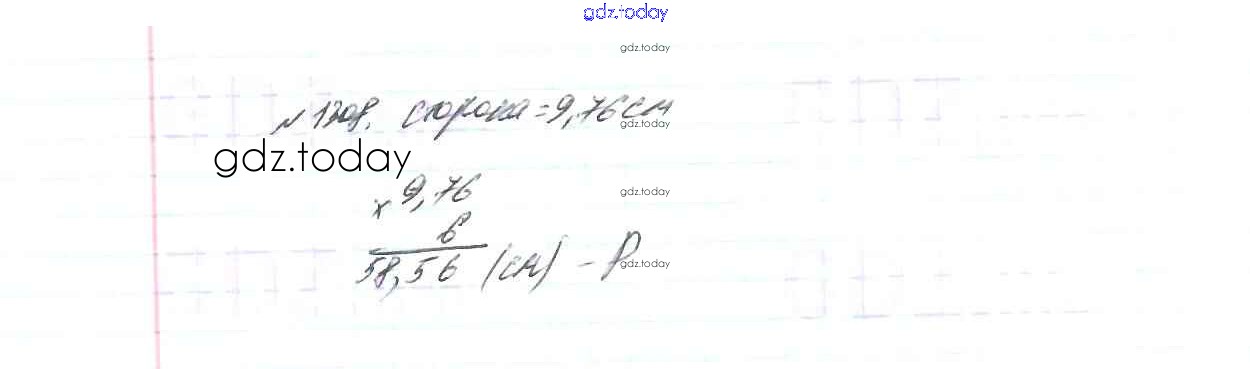 gdz.today
gdz.today
№1308. сторона = 9,76 см
gdz.today
gdz.today
× 9,76
gdz.today
6
58,56 (см) - P
gdz.today